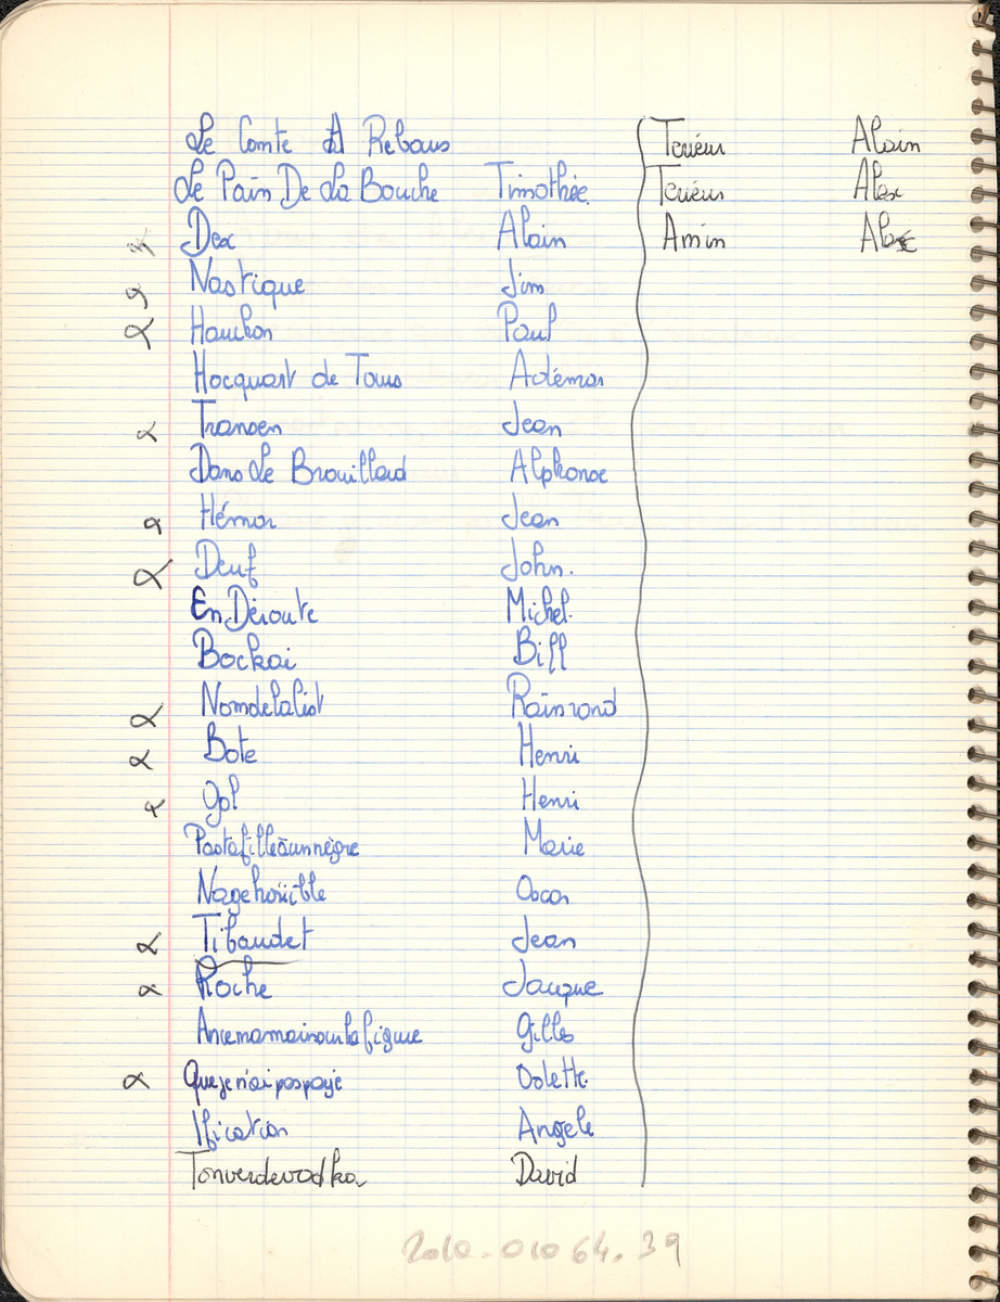 Le Comte A Rebours
Le Pain De La Bouche Timothée.
Dex Alain
Nastique Jim
Hauchon Paul
Hocquart de Tours Adémar
Transen Jean
Dans Le Brouillard Alphonse
Hémar Jean
Deuf John.
En Déroute Michel.
Bockai Bill
Nomdelalist Raimrond
Bote Henri
Gol Henri
Pastafilleàunnègre Marie
Nagehorrible Oscar
Tibaudet Jean
Roche Jacque
Ancemamainsurlafigure Gilles
Quejen'aipaspayé Odette.
Ification Angele
Tonverdevodka David
Terieur Alain
Terieur Alex
Amin Alex
2010.01064.39